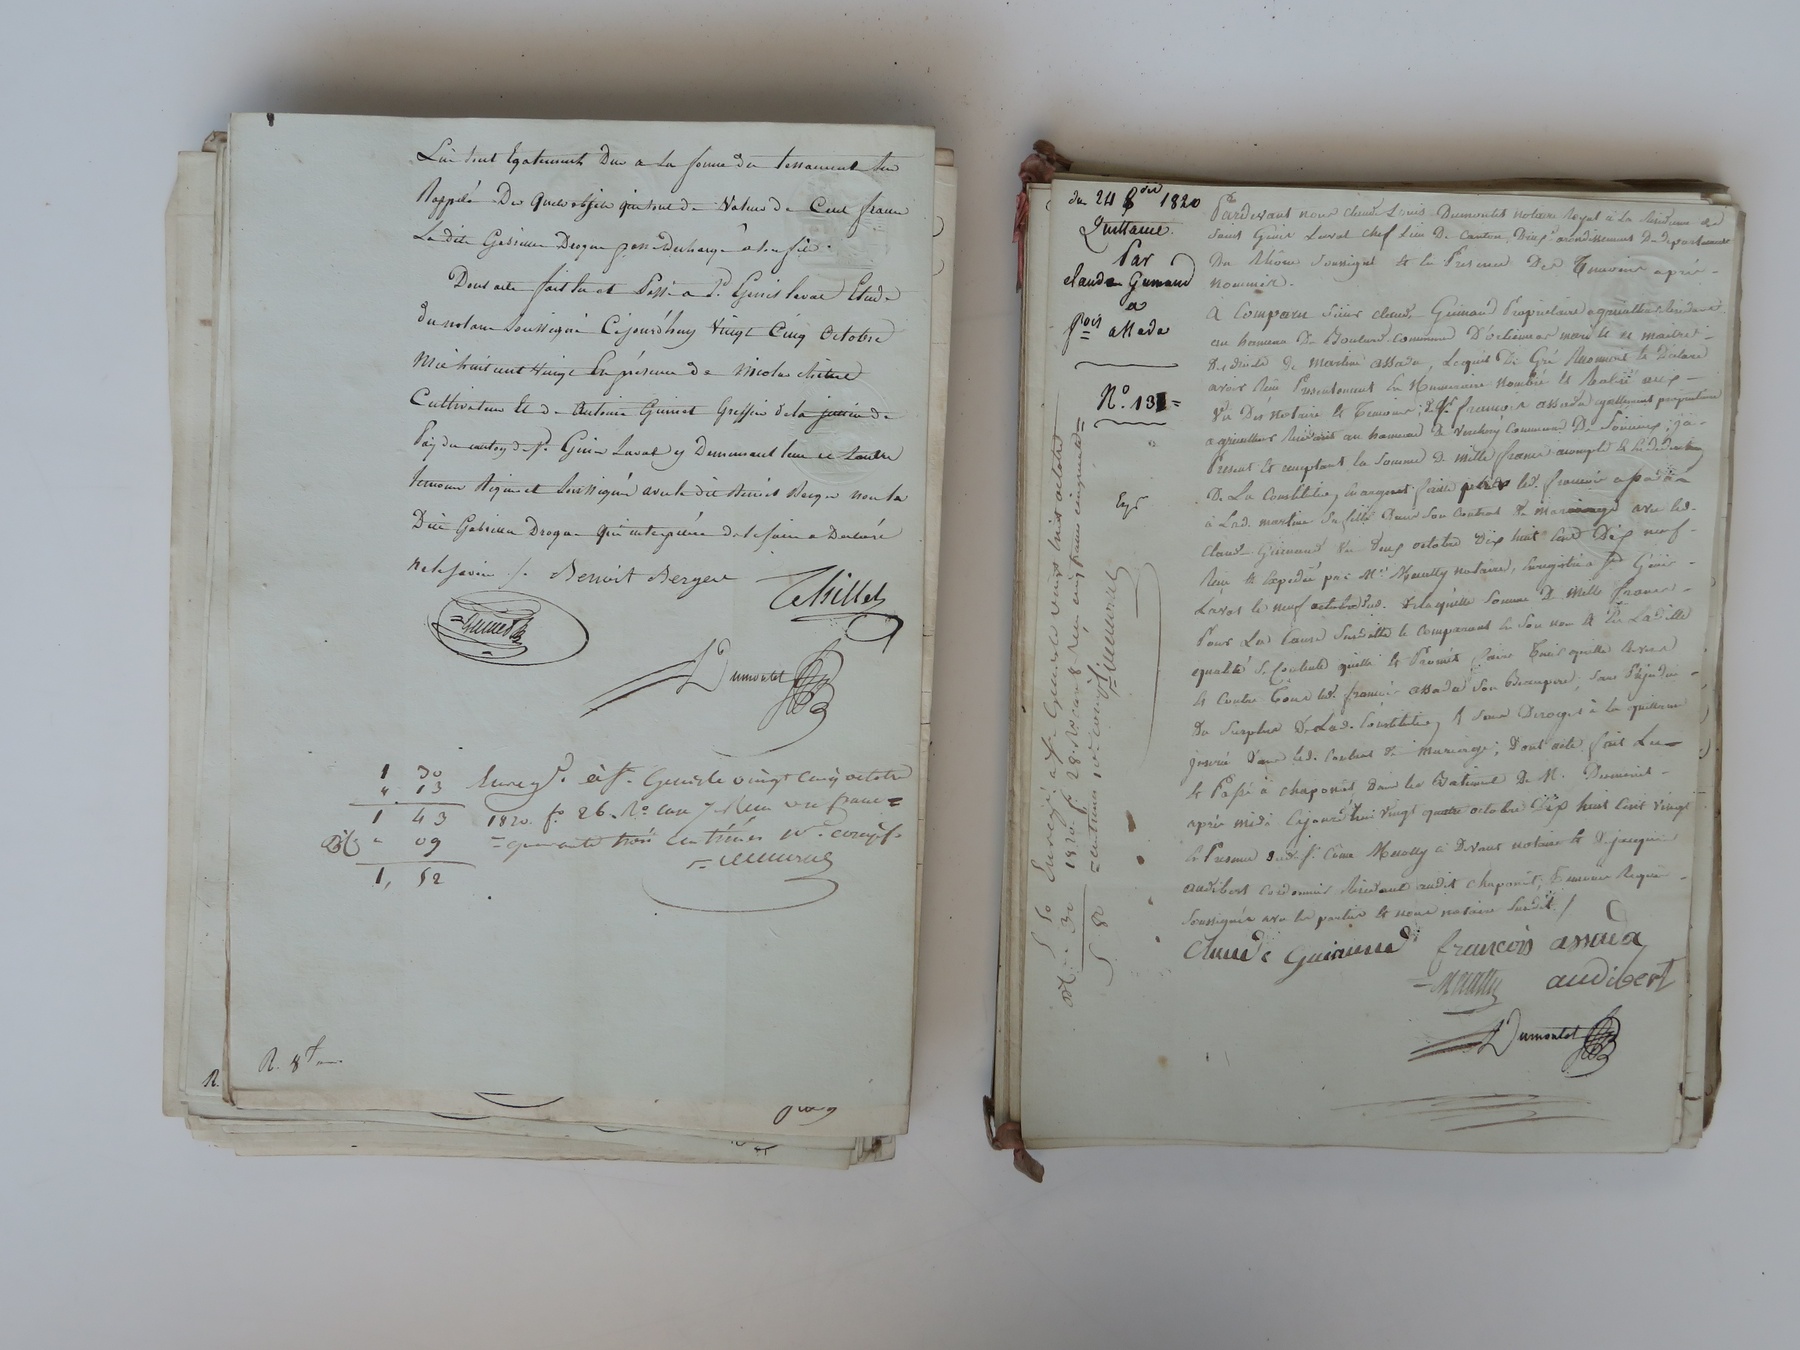 Lui sont Egalement Dus a La forme du Testament Sus
Rappelé Des quels objets qui sont de Valeur de Cent francs
La dite Gabrielle Drogue passe décharge a son fils.
Dont acte fait lu et Passé a St. Genis laval Etude
du notaire Soussigné Cejourd'huy Vingt Cinq Octobre
Mil huit cent Vingt En présence de Nicolas
Cultivateur Et de Antoine Guinet Greffier de la justice de
Paix du canton de St. Genis Laval y Demeurant tous
témoins Requis et Soussignés avec le dit Benoit Berger non la
Dite Gabrielle Drogue qui interpellée de le faire a Declaré
ne le savoir /. Benoit Berger Thillet
Guinet
Dumontet
1 30
" 13
1 43
" 09
1, 52
Enregé. à St. Genis le vingt cinq octobre
1820. fo. 26. Vo. case 7. Reçu un franc
quarante trois centimes Dme. compris
R. 8
du 24 8bre 1820
Quittance
Par
claude Guinand
a
fçois assada
No. 131
Exp
Enregistré à St. Genis le vingt huit octobre
1820. fo. 28. Vo. case 8 Reçu cinq francs cinquante
centimes Dme compris
5 50
5 82
Pardevant nous Claude Louis Dumontet notaire Royal à La Résidence de
Saint Genis Laval chef Lieu De Canton, Deuxe. arrondissement Du Département
Du Rhône Soussigné Et en Presence Des Temoins après
nommés.
A Comparu Sieur claude Guinand Propriétaire agriculteur Résidant
au hameau De Boulard Commune D'orlienas mari Et maitre
des droits de martine assada, Lequel De Gré Reconnait Et déclare
avoir Reçu Presentement En Numéraire Nombré Et Réalisé aux
Vu Des notaire Et Temoins; de Sr. francois assada egalement propriétaire
agriculteur Résidant au hameau de Verchery Commune De Soucieu, ici
Present Et acceptant la Somme De mille francs acompte Et En déduction
De La Constitution, En argent faite par led. francois assada
à Lad. martine Sa fille Dans Son Contrat De mariage avec led.
Claude Guinand Du Deux octobre Dix huit Cent Dix neuf
Reçu Et Expédié par Me. notaire, Enregistré a St. Genis
Laval le neuf octobre Sud. De laquelle Somme De Mille francs
Pour La Cause Susdite Le Comparant En Son nom Et En Ladite
qualité Se Contente quitte Et Promet faire Tenir quitte Envers
Et Contre Tous led. francois assada Son Beaupere, Sans Préjudice
Du Surplus De Lad. Constitution, Et Sans Déroger à la quittance
inserée Dans led. Contrat De mariage; Dont acte fait Lu
Et Passé à chaponost Dans les Batiments De M. Dumontet
après midi Cejourd'hui Vingt quatre octobre Dix huit Cent Vingt
En Presence Dud. Sr. Côme ci Devant notaire Et De jacques
audibert Cordonnier Residant audit chaponost, Temoins Requis
Soussignés avec les parties Et nous notaire Susdit /
Claude Guinand francois assada
audibert
Dumontet